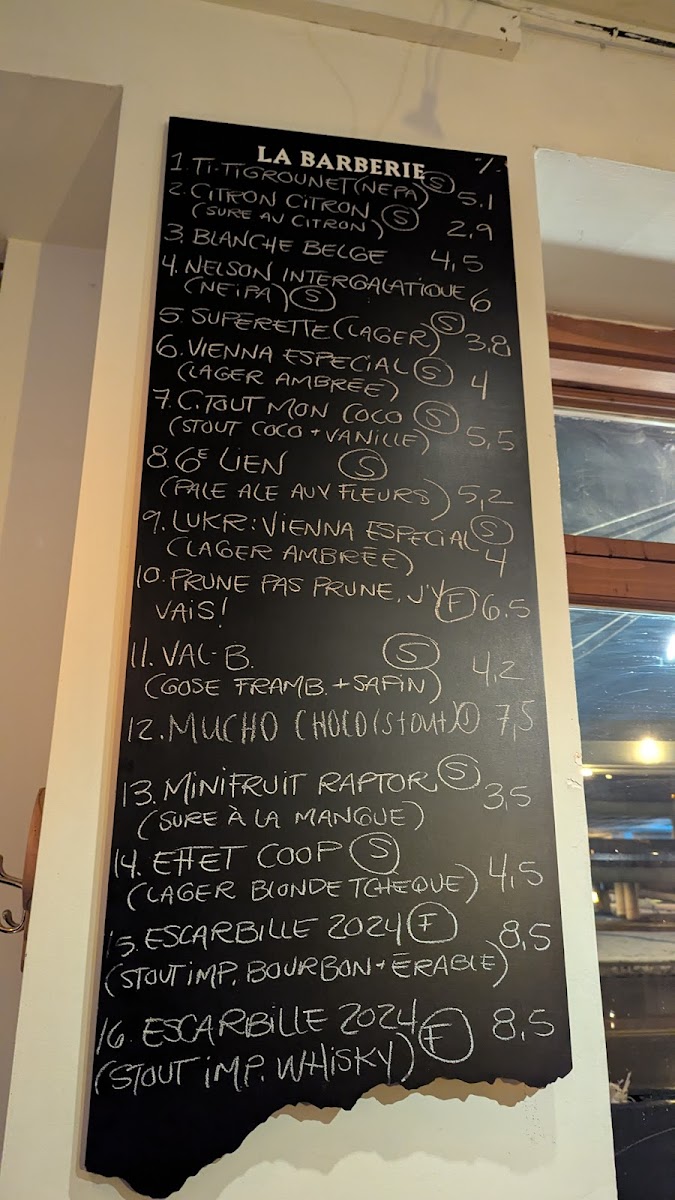 LA BARBERIE %
1. TI-TIGROUNET (NEPA) S 5.1
2. CITRON CITRON S 2,9
(SURE AU CITRON)
3. BLANCHE BELGE 4,5
4. NELSON INTERGALATIQUE 6
(NEIPA) S
5. SUPERETTE (LAGER) S 3,8
6. VIENNA ESPECIAL S 4
(LAGER AMBRÉE)
7. C. TOUT MON COCO S
(STOUT COCO + VANILLE) 5,5
8. 6E LIEN S
(PALE ALE AUX FLEURS) 5,2
9. LUKR: VIENNA ESPECIAL S
(LAGER AMBRÉE) 4
10. PRUNE PAS PRUNE, J'Y F 6.5
VAIS!
11. VAL-B. S 4,2
(GOSE FRAMB. + SAPIN)
12. MUCHO CHOCO (Stout) 7,5
13. MINIFRUIT RAPTOR S 3,5
(SURE À LA MANGUE)
14. EFFET COOP S 4,5
(LAGER BLONDE TCHEQUE)
15. ESCARBILLE 2024 F 8,5
(STOUT IMP. BOURBON + ÉRABLE)
16. ESCARBILLE 2024 F 8,5
(STOUT IMP. WHISKY)